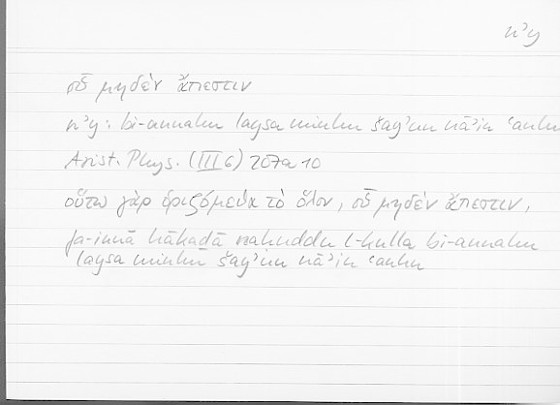 nʾy
οὗ μηδὲν ἄπεστιν
nʾy: bi-annahu laysa minhu šayʾun nāʾin ʿanhu
Arist. Phys. (III 6) 207a10
οὕτω γὰρ ὁριζόμεθα τὸ ὅλον, οὗ μηδὲν ἄπεστιν,
fa-innā hākaḏā naḥuddu l-kulla bi-annahu
laysa minhu šayʾun nāʾin ʿanhu